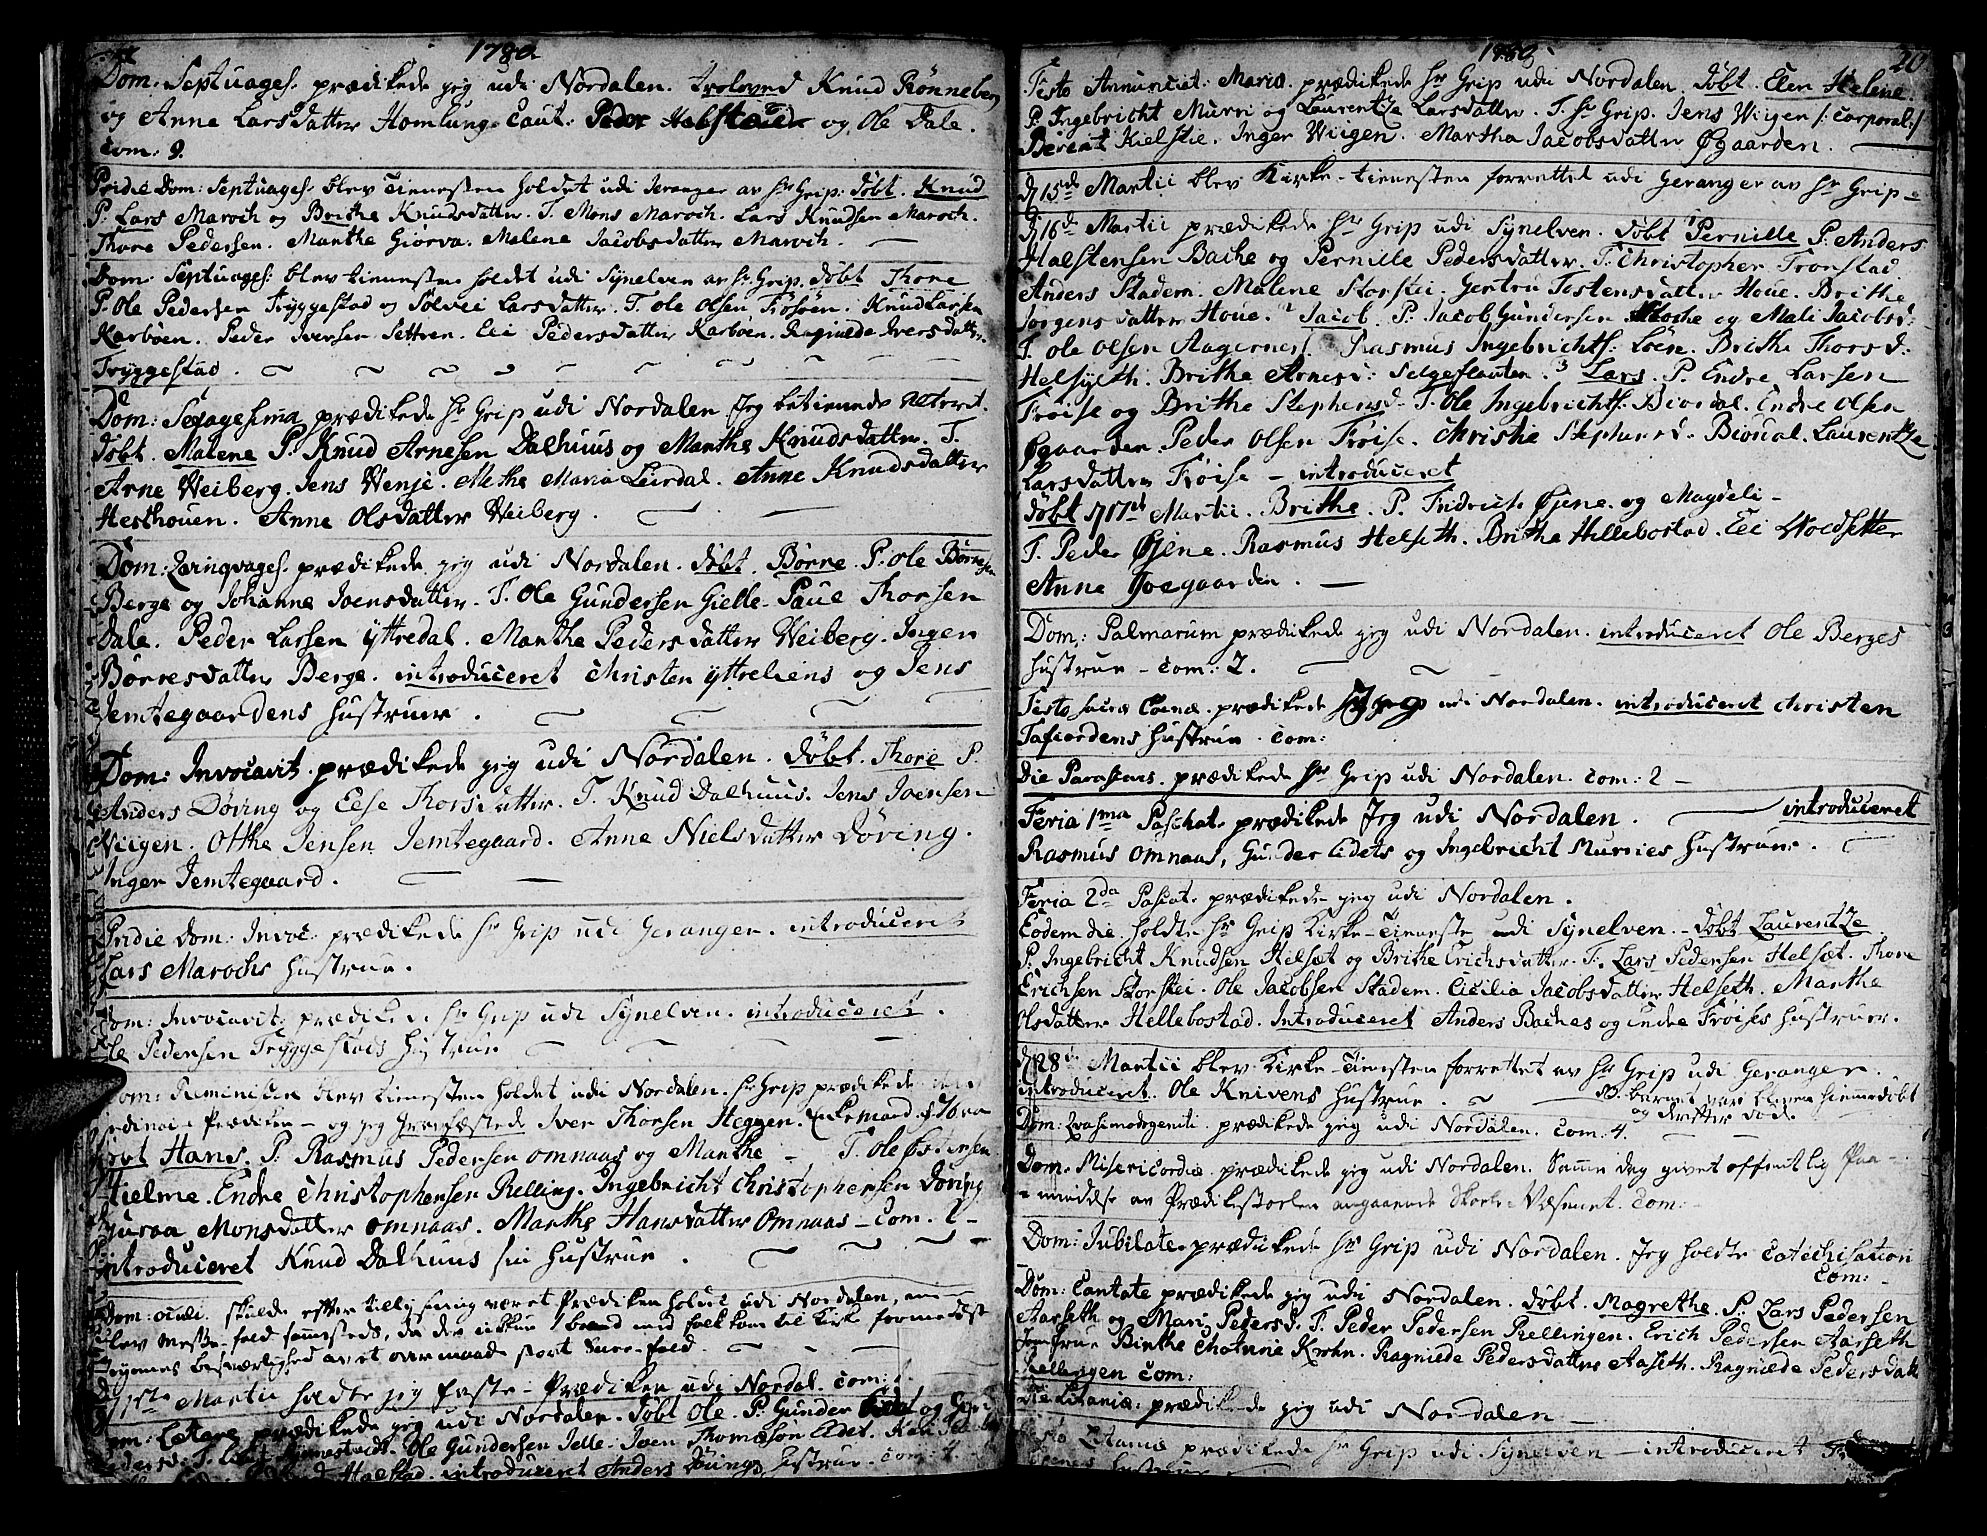 1780
Dom: Septuages. prædikede jeg udi Nordalen. troloved Knud Rønneberg
og Anne Larsdatter Homlung. Caut: Peder og Ole Dale.
Com: 9.
Pridie Dom: Septuages. blev Tienesten holdet udi Geranger av Hr Grip. døbt. Knud
P. Lars Maroch og Brithe Knudsdatter. T. Mons Maroch. Lars Knudsen Maroch.
Thore Pedersen. Marthe Giørva. Malene Jacobsdatter Maroch.
Dom: Septuages: blev tienesten holdet udi Synelven av Hr Grip. døbt Thore
P. Ole Pedersen Tryggestad og Sølvei Larsdatter. T. Ole Olsen Frøsøen. Knud Larsen
Karbøen. Peder Iversen Settren. Eli Pedersdatter Karbøen. Ragnilde Iversdatter
Tryggestad.
Dom: Sexagesima prædikede Hr Grip udi Nordalen Jeg betienede Alteret.
døbt. Malene P. Knud Arnesen Dalhuus og Marthe Knudsdatter. T.
Arne Weiberg. Jens Wenje. Methe Maria Leirdal. Anne Knudsdatter
Hesthouen. Anne Olsdatter Weiberg.
Dom: Qvinqvages. prædikede jeg udi Nordalen. døbt. Børre. P. Ole Børresen
Berge og Johanne Joensdatter. T. Ole Gundersen Gielle. Paul Thorsen
Dale. Peder Larsen Yttredal. Marthe Pedersdatter Weiberg. Inger
Børresdatter Berge. introduceret Christen Yttreliens og Jens
Jemtegaardens Hustruer.
Dom: Invocavit prædikede jeg udi Nordalen. døbt. Thore P.
Anders Døving og Else Thorsdatter. T. Knud Dalhuus. Jens Joensen
Wiigen. Otthe Jensen Jemtegaard. Anne Nielsdatter Døving.
Inger Jemtegaard.
Pridie Dom: Invoc: prædikede Hr Grip udi Geranger. introduceret
Lars Marochs Hustrue.
Dom: Invocavit: prædikede Hr Grip udi Synelven. introduceret.
Ole Pedersen Tryggestads Hustrue
Dom: Reminiscere blev tienesten holdet udi Nordalen. Hr Grip prædikede
Prædiken - og jeg Iver Thorsen Heggen. Enkemand
døbt Hans. P. Rasmus Pedersen Omnaas og Marthe - T. Ole Østensen
Hielme. Endre Christophersen Relling. Ingebricht Christophersen Døving
Guroa Monsdatter Omnaas. Marthe Hansdatter Omnaas - Com. 2 -
introduceret Knud Dalhuus sin Hustrue.
Dom: Oculi skulde efter tillysning været Prædiken holdet udi Nordalen, men
blev Messe-fald sammesteds, da der ikkun 1 baad med folk kom til Kirke formedelst
Vejenes besværlighed av et overmaade stort Snee-fald.
d. 1ste Martii holdte jeg faste-Prædiken udi Nordal. Com: 1.
Dom: Lætare prædikede jeg udi Nordalen. Døbt Ole. P. Gunder Eidet og
Pedersd: T. Ole Gundersen Jelle. Joen Thomæson Eidet.
Halstad. introduceret Anders Døvings Hustrue. Com: 4.
1780
20
Festo Annunciat: Mariæ. prædikede Hr Grip udi Nordalen. Døbt. Elen Helene
P. Ingebricht Murri og Laurentze Larsdatter. T. Hr Grip. Jens Wiigen /: Corporal :/
Berent Kielstie. Inger Wiigen. Martha Jacobsdatter Øgaarden.
d. 15de Martii blev Kirke-tienesten forrettet udi Geranger av Hr Grip -
d. 16de Martii prædikede Hr Grip udi Synelven. døbt 1 Pernille P. Anders
Halstensen Bache og Pernille Pedersdatter. T. Christopher Fronstad.
Anders Stadem. Malene Storstei. Gertru Tostensdatter Houe. Brithe
Jørgensdatter Houe. 2 Jacob. P. Jacob Gundersen og Mali Jacobsd:
T. Ole Olsen Aagernes. Rasmus Ingebrichts: Løen. Brithe Thorsd:
Helsylth. Brithe Arnesd: Selgeflauten. 3 Lars. P. Endre Larsen
Frøise og Brithe Stephensd. T. Ole Ingebrichts: Biørdal. Endre Olsen
Øgaarden. Peder Olsen Frøise. Christie Stephensd. Biørdal. Laurentze
Larsdatter Frøise - introduceret
døbt d. 17de Martii. Brithe. P. Fridrich Øjene. og Magdeli -
T. Peder Øjene. Rasmus Helseth. Brithe Hillebostad. Eli Woldsetter
Anne Joegaarden.
Dom: Palmarum prædikede jeg udi Nordalen. introduceret Ole Berges
Hustrue - Com: 2.
Festo Sacræ Coenæ. prædikede Jeg udi Nordalen. introduceret Christen
Tafiordens Hustrue. Com:
Die Parasceves. prædikede Hr Grip udi Nordalen. Com: 2 -
Feria 1ma Paschat. prædikede Jeg udi Nordalen. introduceret
Rasmus Omnaas, Gunder Eidets og Ingebricht Murries Hustruer.
Feria 2da Pascat. prædikede jeg udi Nordalen.
Eodem die holdte Hr Grip Kirke-Tieneste udi Synelven. - Døbt Laurentze
P. Ingebricht Knudsen Helsæt og Brithe Erichsdatter. T. Lars Pedersen Helsæt. Thore
Erichsen Storstei. Ole Jacobsen Stadem. Cicilia Jacobsdatter Helseth. Marthe
Olsdatter Hellebostad. Introduceret Anders Baches og Endre Frøises Hustruer.
d. 28de Martii blev Kirke-Tienesten forrettet av Hr Grip udi Geranger.
introduceret. Ole Knivens Hustrue. NB. barnet var bleven hiemedøbt
og derefter døde.
Dom: Qvasimodogeniti. prædikede jeg udi Nordalen. Com: 4.
Dom: Misericordiæ. prædikede jeg udi Nordalen. Samme Dag givet offentlig Paa-
mindelse av Prædikestolen angaaende Skole-Væsenet. Com:
Dom: Jubilate. prædikede Hr Grip udi Nordalen. Jeg holdte Catechisation
Com:
Dom: Cantate prædikede jeg udi Nordalen. døbt. Magrethe. P: Lars Pedersen
Aarseth og Mari Pedersd. T. Peder Pedersen Rellingen. Erich Pedersen Aarseth
Jomfrue Birthe Krohn. Ragnilde Pedersdatter Aaseth. Ragnilde Pedersdatt
Rellingen Com:
Die Litaniæ: prædikede jeg udi Nordalen -
Festo Litaniæ prædikede Hr Grip udi Synelven - introduceret
Hustrue